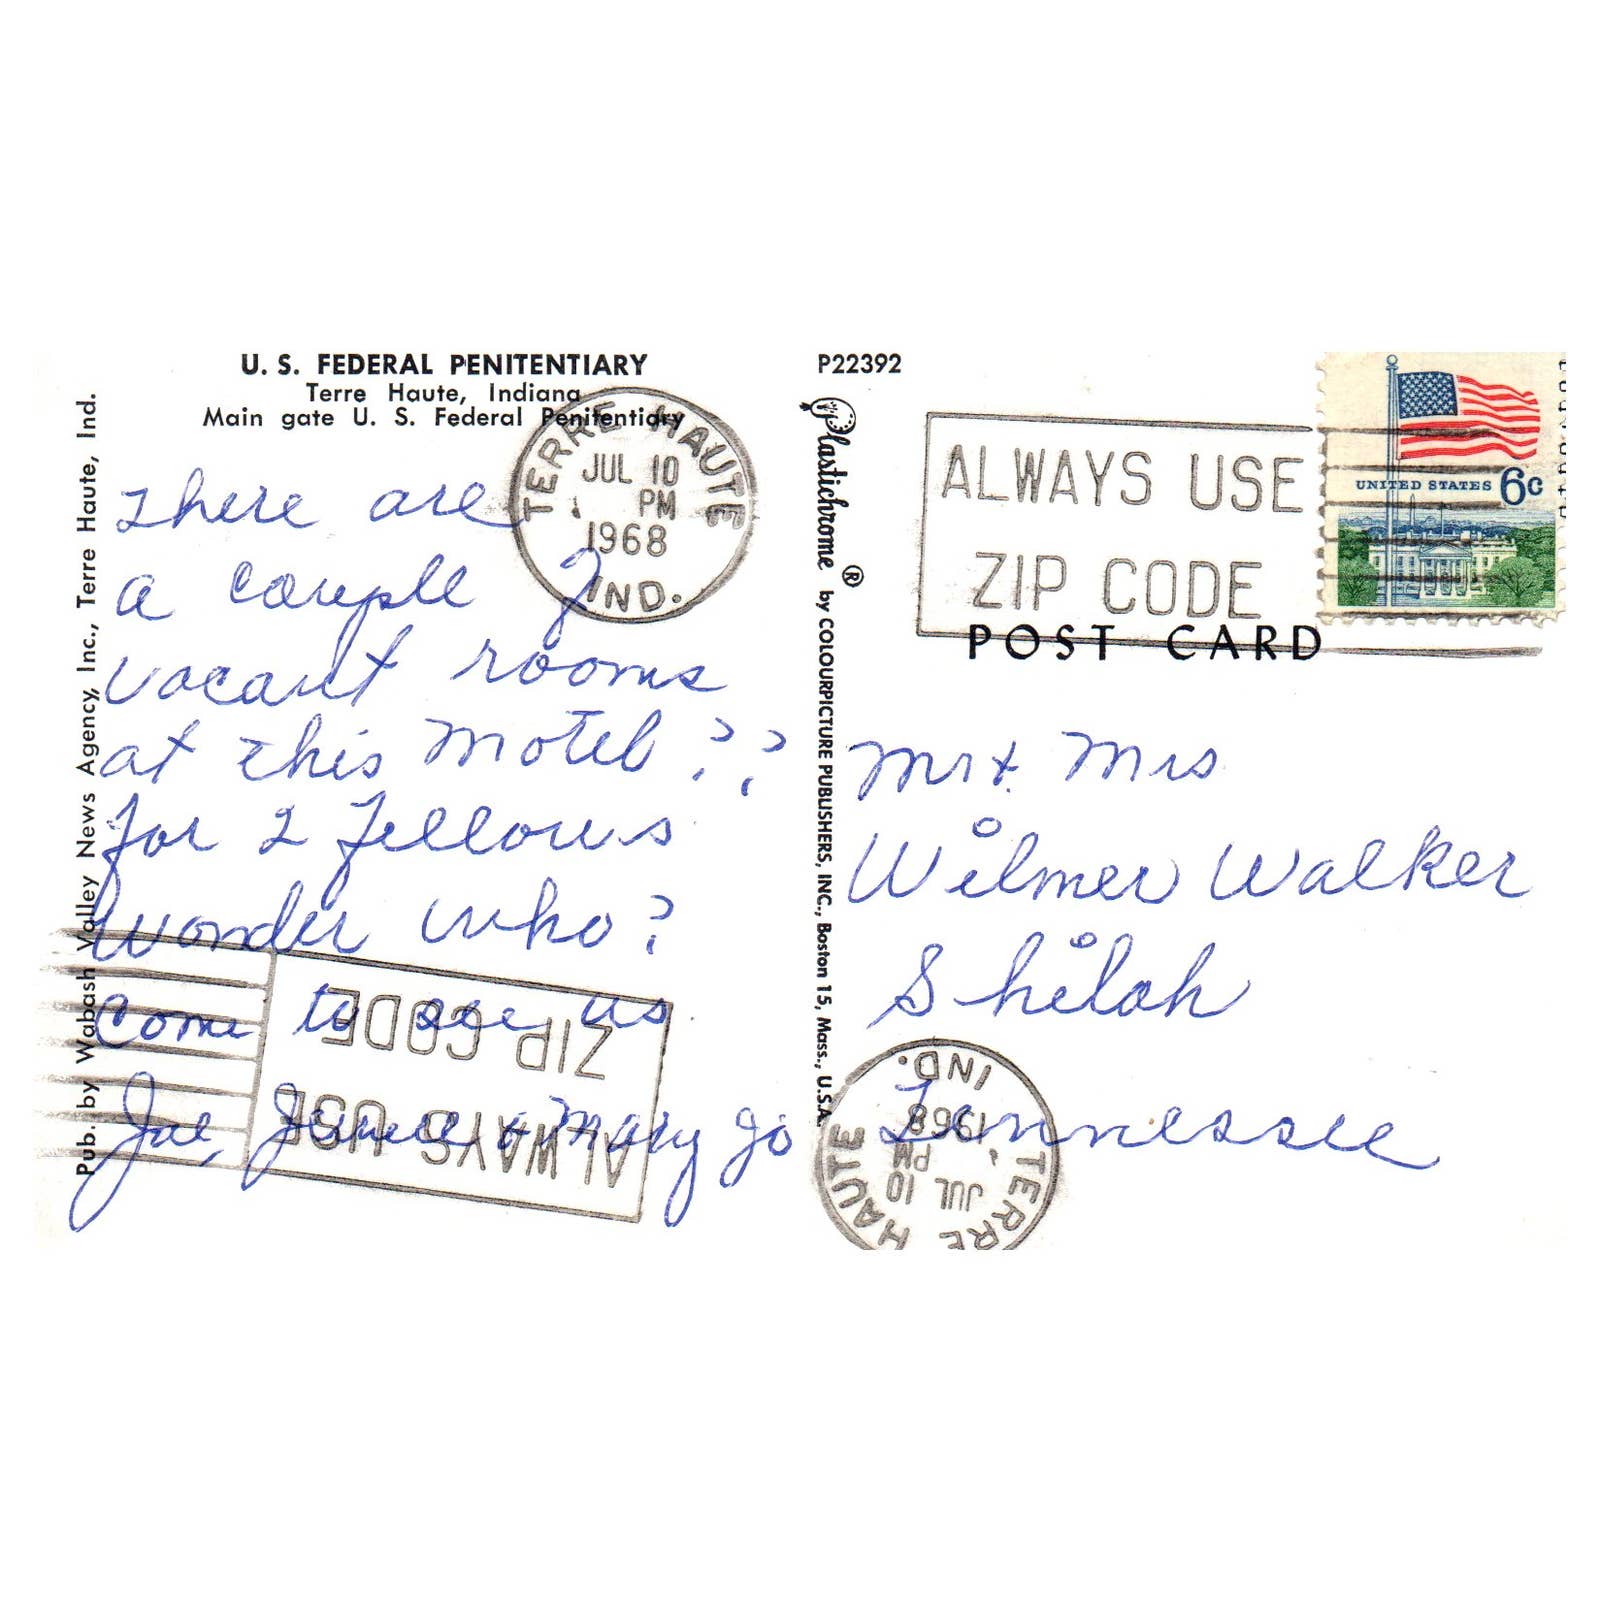 U. S. FEDERAL PENITENTIARY
Terre Haute, Indiana
Main gate U. S. Federal Penitentiary
Pub. by Wabash Valley News Agency, Inc., Terre Haute, Ind.
TERRE HAUTE
JUL 10
PM
1968
IND.
There are
a couple of
vacant rooms
at this Motel ??
for 2 fellows
Wonder who?
Come to see us
Joe, & Mary Jo
ALWAYS USE
ZIP CODE
P22392
Plastichrome ® by COLOURPICTURE PUBLISHERS, INC., Boston 15, Mass., U.S.A.
ALWAYS USE
ZIP CODE
UNITED STATES 6c
POST CARD
Mr & Mrs
Wilmer Walker
Shiloh
Tennessee
TERRE HAUTE
JUL 10
PM
1968
IND.